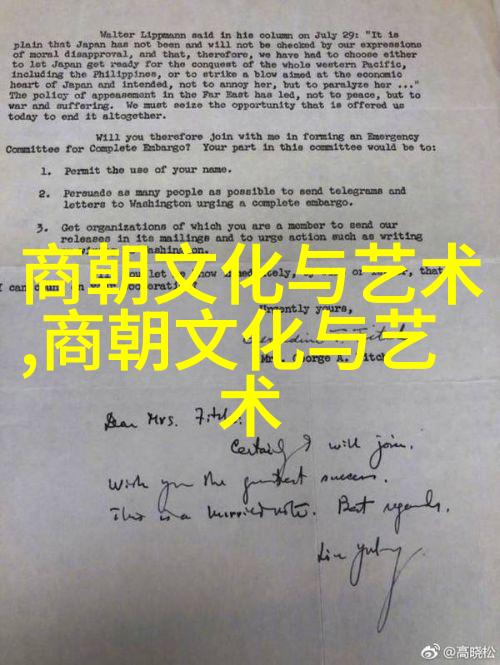 Walter Lippmann said in his column on July 29: "It is
plain that Japan has not been and will not be checked by our expressions
of moral disapproval, and that, therefore, we have had to choose either
to let Japan get ready for the conquest of the whole western Pacific,
including the Philippines, or to strike a blow aimed at the economic
heart of Japan and intended, not to annoy her, but to paralyze her ..."
The policy of appeasement in the Far East has led, not to peace, but to
war and suffering. We must seize the opportunity that is offered us
today to end it altogether.
Will you therefore join with me in forming an Emergency
Committee for Complete Embargo? Your part in this committee would be to:
1. Permit the use of your name.
2. Persuade as many people as possible to send telegrams and
letters to Washington urging a complete embargo.
3. Get organizations of which you are a member to send our
releases in its mailings and to urge action such as writing
Washington.
商朝文化与艺术
you let know immediately, or that
I can count
Urgently yours,
,商朝文化与艺
Mrs. George A. Fitch
术
Dear Mrs. Fitch:
Certainly I will join.
Wish you the greatest success.
This is a hurried note. Best regards.
Lin Yutang
@高晓松